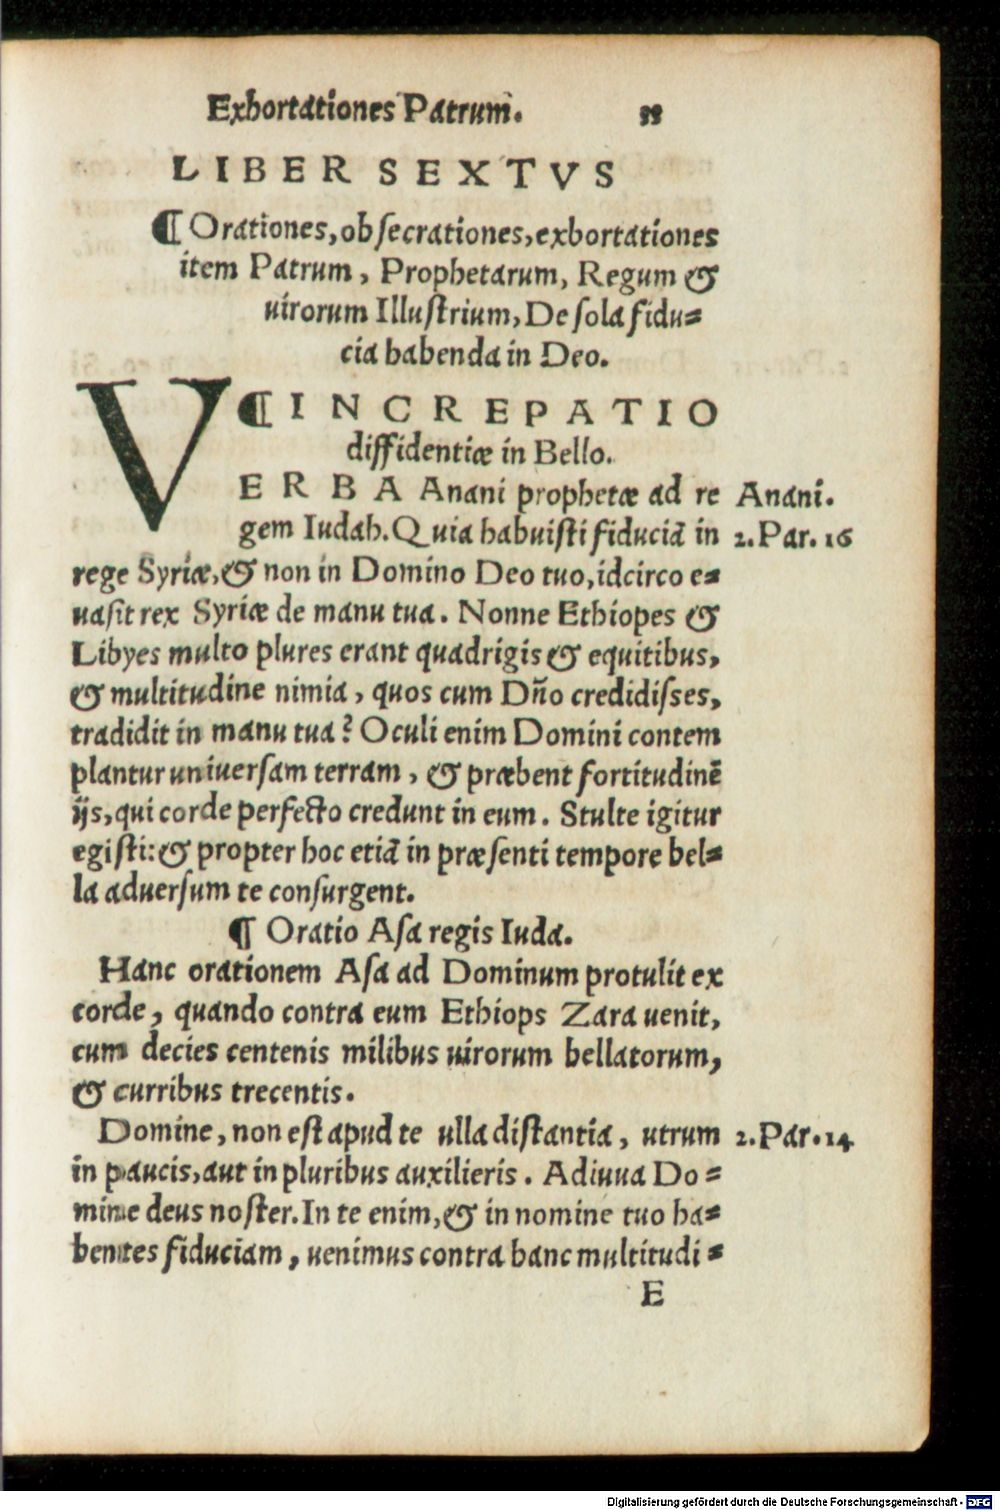 Exhortationes Patrum. 33
LIBER SEXTVS
¶ Orationes, obsecrationes, exhortationes
item Patrum, Prophetarum, Regum &
uirorum Illustrium, De sola fidu=
cia habenda in Deo.
¶ INCREPATIO
diffidentiæ in Bello.
VERBA Anani prophetæ ad re Anani.
gem Iudah. Quia habuisti fiduciā in 2. Par. 16
rege Syriæ, & non in Domino Deo tuo, idcirco e=
uasit rex Syriæ de manu tua. Nonne Ethiopes &
Libyes multo plures erant quadrigis & equitibus,
& multitudine nimia, quos cum Dño credidisses,
tradidit in manu tua? Oculi enim Domini contem
plantur uniuersam terram, & præbent fortitudinē
ijs, qui corde perfecto credunt in eum. Stulte igitur
egisti: & propter hoc etiā in præsenti tempore bel=
la aduersum te consurgent.
¶ Oratio Asa regis Iuda.
Hanc orationem Asa ad Dominum protulit ex
corde, quando contra eum Ethiops Zara uenit,
cum decies centenis milibus uirorum bellatorum,
& curribus trecentis.
Domine, non est apud te ulla distantia, utrum 2. Par. 14
in paucis, aut in pluribus auxilieris. Adiuua Do=
mine deus noster. In te enim, & in nomine tuo ha=
bentes fiduciam, uenimus contra hanc multitudi=
E
Digitalisierung gefördert durch die Deutsche Forschungsgemeinschaft - DFG